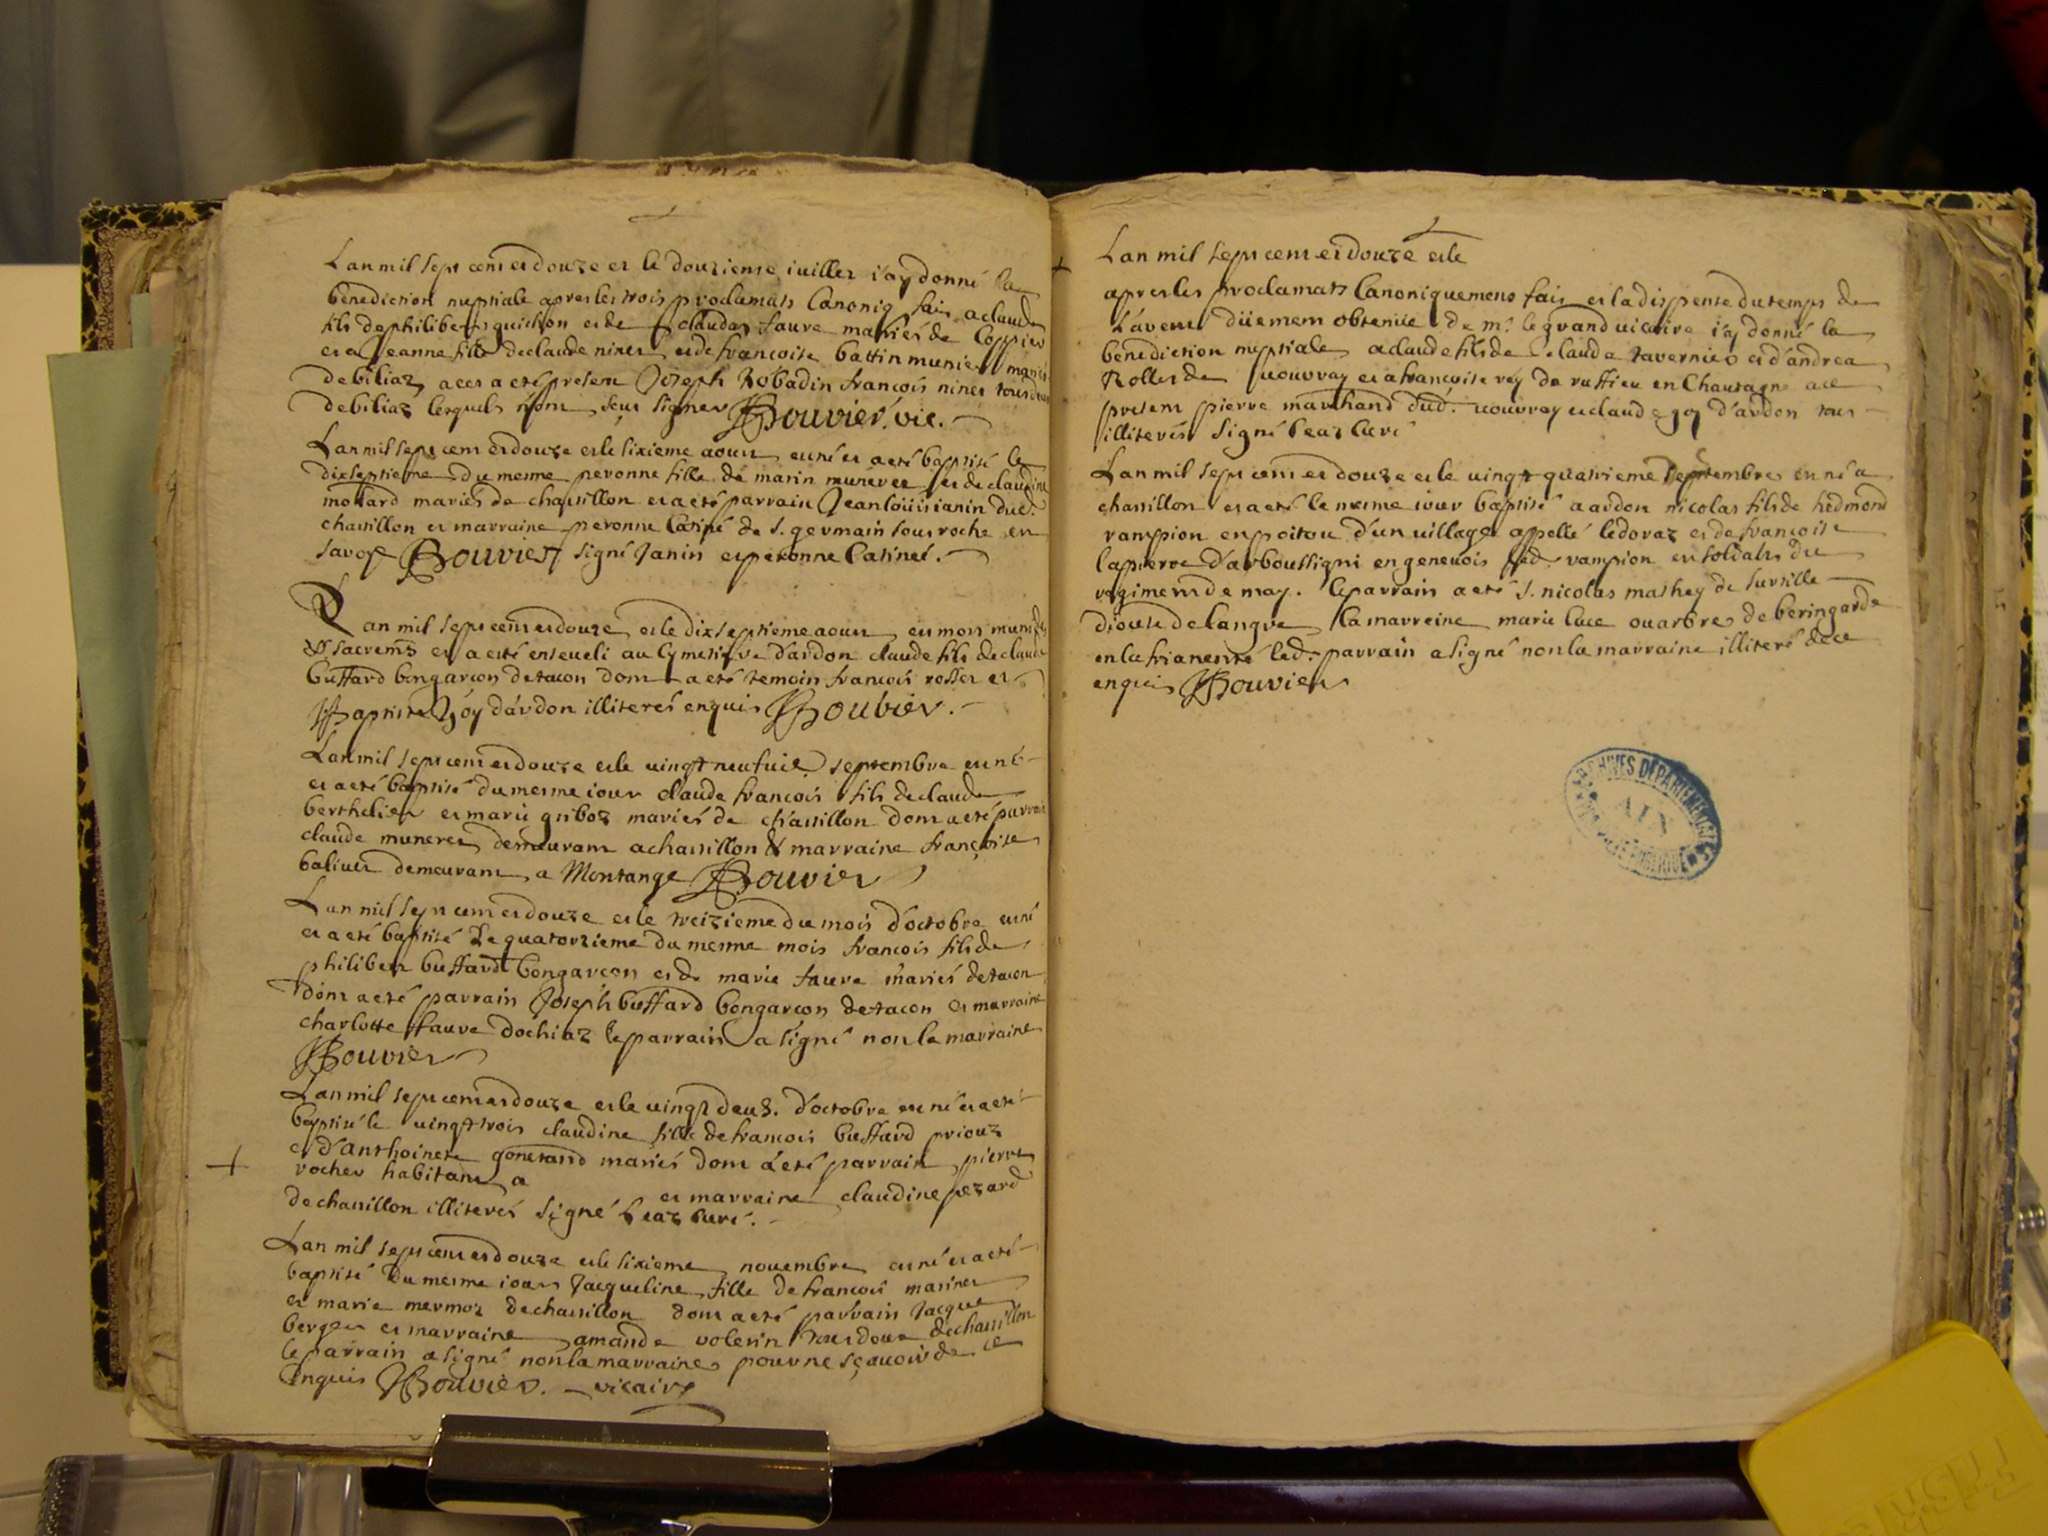 Lan mil sept cent et douze et le douzieme iuillet i'ay donné la
benediction nuptiale apres les trois proclamats Canoniq. fais a claude
fils de philibert guichon et de claudaz faure mariés de
et a Jeanne fille de claude ninet et de francoise battin munier mariés
de billiaz a ce a eté present Joseph Robadin francois ninet tous deux
de billiaz lesquels n'ont sceu signer Bouvier. vic.
Lan mil sept cent et douze et le sixieme aoust est né et a eté baptisé le
dixseptieme du mesme peronne fille de marin muneret et de claudine
mollard mariés de chassillon et a eté parrain Jean louis ianin dud.
chassillon et marraine peronne Catiné de S. germain sous roche en
savoye Bouvier signé Janin et peronne Catinet.
Lan mil sept cent et douze et le dixseptieme aoust est mort muni des
Sts sacremts et a eté enseveli au Cymetiere d'ardon claude fils de claude
buffard bongarcon de tacon dont a eté temoin francois rollet et
Baptiste Goy d'ardon illiterés enquis Bouvier.
Lan mil sept cent et douze et le vingt septembre est né
et a eté baptisé du mesme iour claude francois fils de claude
berthelier et marie griboz mariés de chassillon dont a eté parrain
claude muneret demeurant a chassillon & marraine francoise
balivet demeurant a Montange Bouvier
Lan mil sept cent et douze et le treizieme du mois d'octobre est né
et a eté baptisé le quatorzieme du mesme mois francois fils de
philibert buffard bongarcon et de marie faure mariés de tacon
dont a eté parrain Joseph buffard bongarcon de tacon et marraine
charlotte ffaure d'ochiaz le parrain a signé non la marraine
Bouvier
Lan mil sept cent et douze et le vingt deux. d'octobre est né et a eté
baptisé le vingt trois claudine fille de francois buffard priouz
et d'anthoinete gonetand mariés dont a eté parrain pierre
rochez habitant a et marraine claudine pezard
de chassillon illiterés signé beaz curé.
Lan mil sept cent et douze et le sixieme novembre est né et a eté
baptisé du mesme iour Jacqueline fille de francois marinet
et marie mermoz de chassillon dont a eté parrain Jacque
berger et marraine amande volerin tous deux de chassillon
le parrain a signé non la marraine pour ne sçavoir de ce
enquis Bouvier. vicaire
Lan mil sept cent et douze et le
apres les proclamats Canoniquement fais et la dispense du temps de
L'avent düement obtenüe de mr. le grand vicaire i'ay donné la
benediction nuptiale a claude fils de claude tavernier et d'andrea
Rollet de vouvray et a francoise rey de ruffieu en Chautagne a ce
present pierre marchand dud. vouvray et claude goy d'ardon tous
illiterés signé beaz curé
Lan mil sept cent et douze et le vingt quatrieme septembre est né a
chassillon et a eté le mesme iour baptisé a ardon nicolas fils de hedmond
rampion en poitou d'un village appellé ledoraz et de francoise
lapierre d'arboussigni en genevois led. rampion est soldat du
regiment de may. le parrain a eté S. nicolas mathey de surville
diocese de langre la marreine marie luce ouarbre de beringarde
en la led. parrain a signé non la marraine illiteré de ce
enquis Bouvier
ARCHIVES DEPARTEMENTALES
AIN